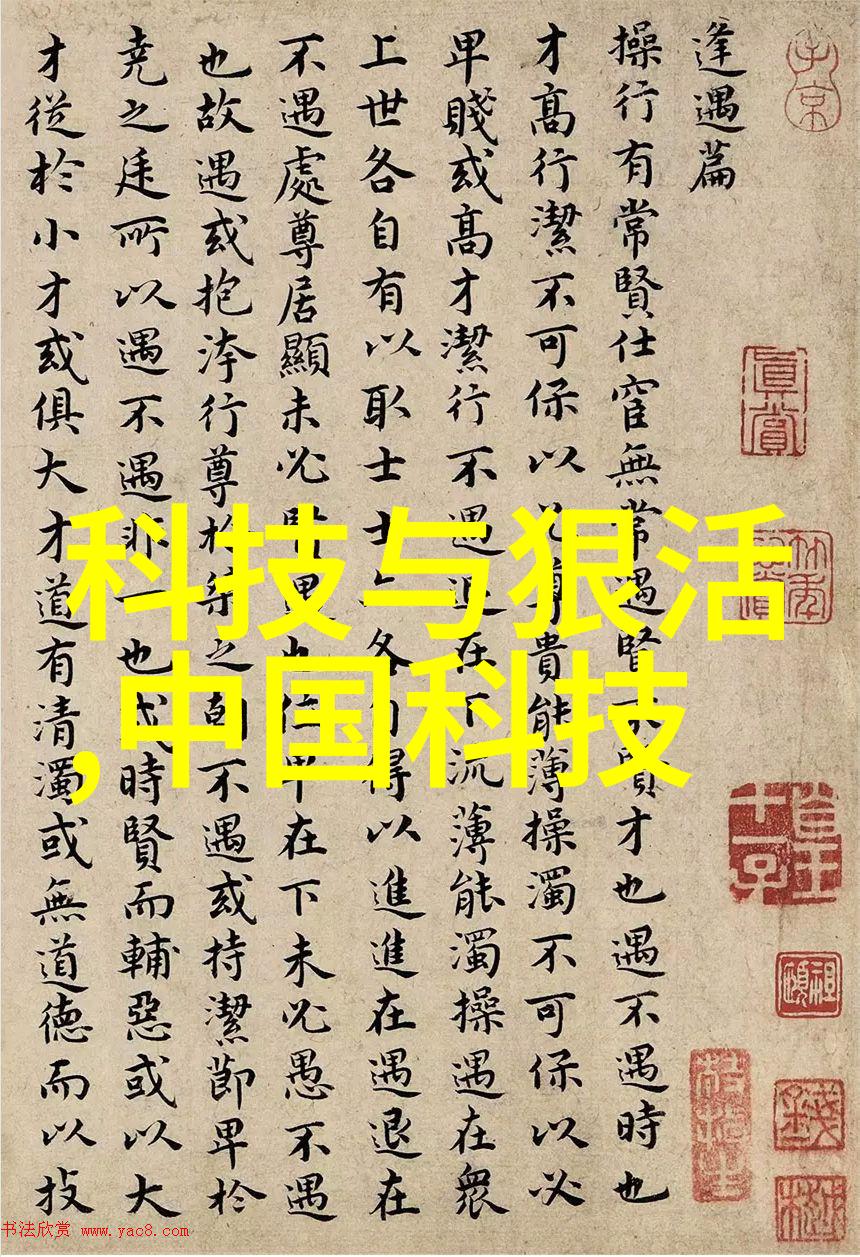 逢遇篇
操行有常賢仕宦無常遇賢不賢才也遇不遇時也
才高行潔不可保以必尊貴能薄操濁不可保以必
卑賤或高才潔行不遇退在下流薄能濁操遇在衆
上世各自有以取士士亦各自得以進進在遇退在
不遇處尊居顯未必賢遇也位卑在下未必愚不遇
也故遇或抱洿行尊於桀之朝不遇或持潔節卑於
堯之廷所以遇不遇非一也或時賢而輔惡或以大
才從於小才或俱大才道有清濁或無道德而以技
子京
真賞
科技与狠活
,中国科技
书法欣赏 www.yac8.com